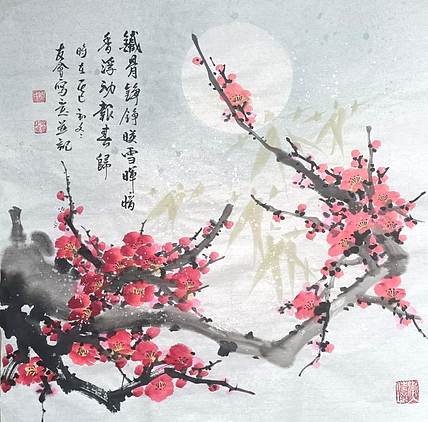 鐵骨錚錚映雪暉暗
香浮动報春歸
時在乙巳初冬
寫意並記